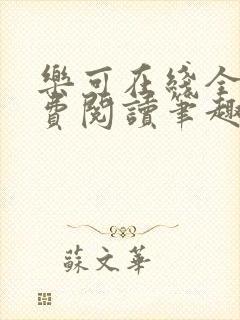 樂可在綫全
費閱讀筆趣
蘇文華